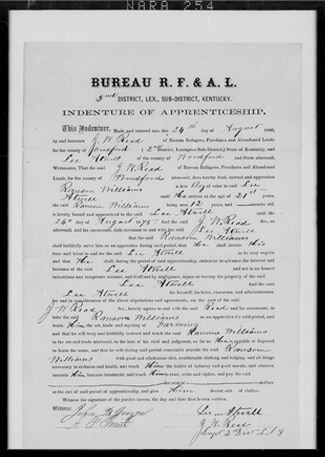 NARA 254
BUREAU R. F. & A. L.
2nd DISTRICT, LEX., SUB-DISTRICT, KENTUCKY.
INDENTURE OF APPRENTICESHIP.
This Indenture, Made and entered into this 24th day of August 1866,
by and between J W Read of Bureau Refugees, Freedmen and Abandoned Lands
for the county of Woodford (2nd District, Lexington Sub-District) State of Kentucky, and
Lee Atwell of the county of Woodford and State aforesaid,
Witnesseth, That the said J W Read of Bureau Refugees, Freedmen and Abandoned
Lands, for the county of Woodford aforesaid, does hereby bind, commit and apprentice
Ranson Williams a Boy of color to said Lee
Atwell until he arrives at the age of 21st years,
the said Ranson Williams being 12 years, and months old,
is hereby bound and apprenticed to the said Lee Atwell until the
24th day of August and the said J W Read, as
aforesaid, and his successors, doth covenant to and with the said Lee Atwell
that the said Ranson Williams
shall faithfully serve him as an apprentice during said period, that He shall devote His
time and labor to the said Lee Atwell
and that He shall, during the period of said apprenticeship, endeavor to advance the interest and
business of the said Lee Atwell and not in an honest
industrious and temperate manner, and shall not by negligence, injure or destroy the property of the
said Lee Atwell And the said
Lee Atwell for himself, his heirs, executors, and administrators,
for and in consideration of the above stipulations and agreements, on the part of the
J W Read &c., hereby agrees to and with the said Read and his successors, to
take the said Ranson Williams as an apprentice for said period, and
learn Him the art, trade and mystery of Farming
and that he will truly and faithfully instruct and teach the said Ranson Williams
in the art and trade aforesaid, to the best of his skill and judgment, so far as He is capable or disposed
to learn the same, and that he will during said period constantly provide the said Ranson
Williams with good and wholesome diet, comfortable clothing and lodging, and all things
necessary in sickness and health, and teach Him the habits of industry and good morals, and observe
towards Him humane treatment, and teach Him to read, write and cipher, and pay the said
the sum of dollars
at the end of said period of apprenticeship, and give Him decent suit of clothes.
Witness the signatures of the parties hereto, the day and date first herein written.
Witness:
Lee Atwell
J. W. Read